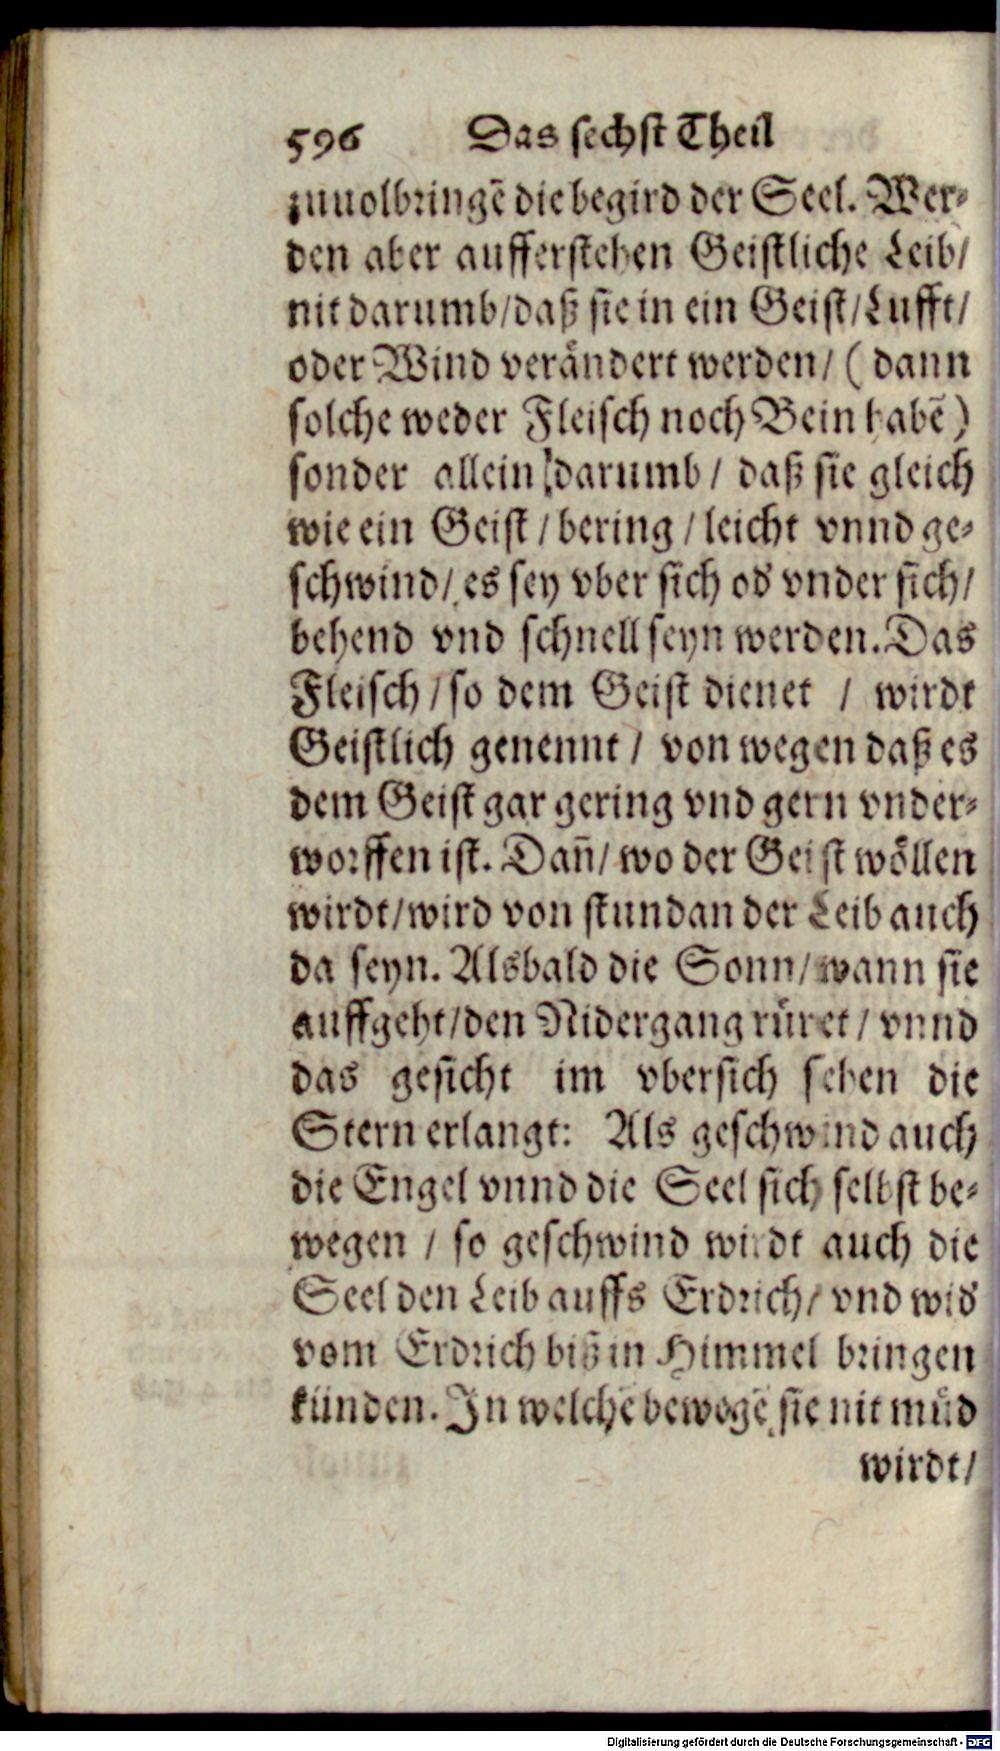 596 Das sechst Theil
zuuolbringē die begird der Seel. Wer-
den aber aufferstehen Geistliche Leib/
nit darumb/daß sie in ein Geist/Lufft/
oder Wind verändert werden/ (dann
solche weder Fleisch noch Bein habē)
sonder allein darumb/ daß sie gleich
wie ein Geist/bering/leicht vnnd ge-
schwind/ es sey vber sich od vnder sich/
behend vnd schnell seyn werden. Das
Fleisch/so dem Geist dienet / wirdt
Geistlich genennt/ von wegen daß es
dem Geist gar gering vnd gern vnder-
worffen ist. Dañ/ wo der Geist wöllen
wirdt/wird von stundan der Leib auch
da seyn. Alsbald die Sonn/wann sie
auffgeht/den Nidergang rüret/ vnnd
das gesicht im vbersich sehen die
Stern erlangt: Als geschwind auch
die Engel vnnd die Seel sich selbst be-
wegen / so geschwind wirdt auch die
Seel den Leib auffs Erdrich/ vnd wid
vom Erdrich biß in Himmel bringen
künden. In welchē bewegē sie nit müd
wirdt/
Digitalisierung gefördert durch die Deutsche Forschungsgemeinschaft - DFG